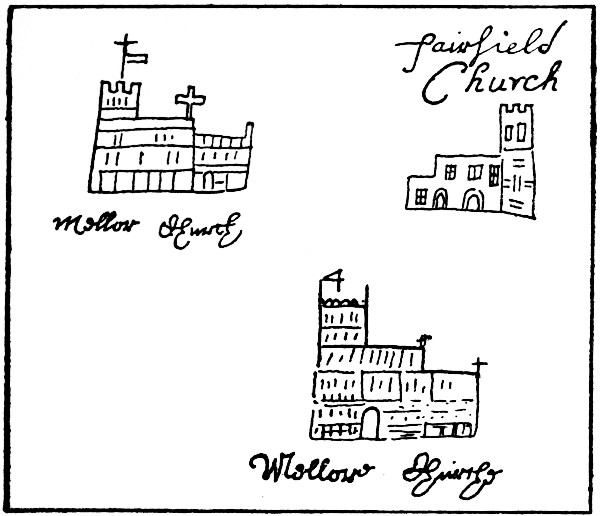 Fairfield
Church
Mellor Church
Mellore Churche